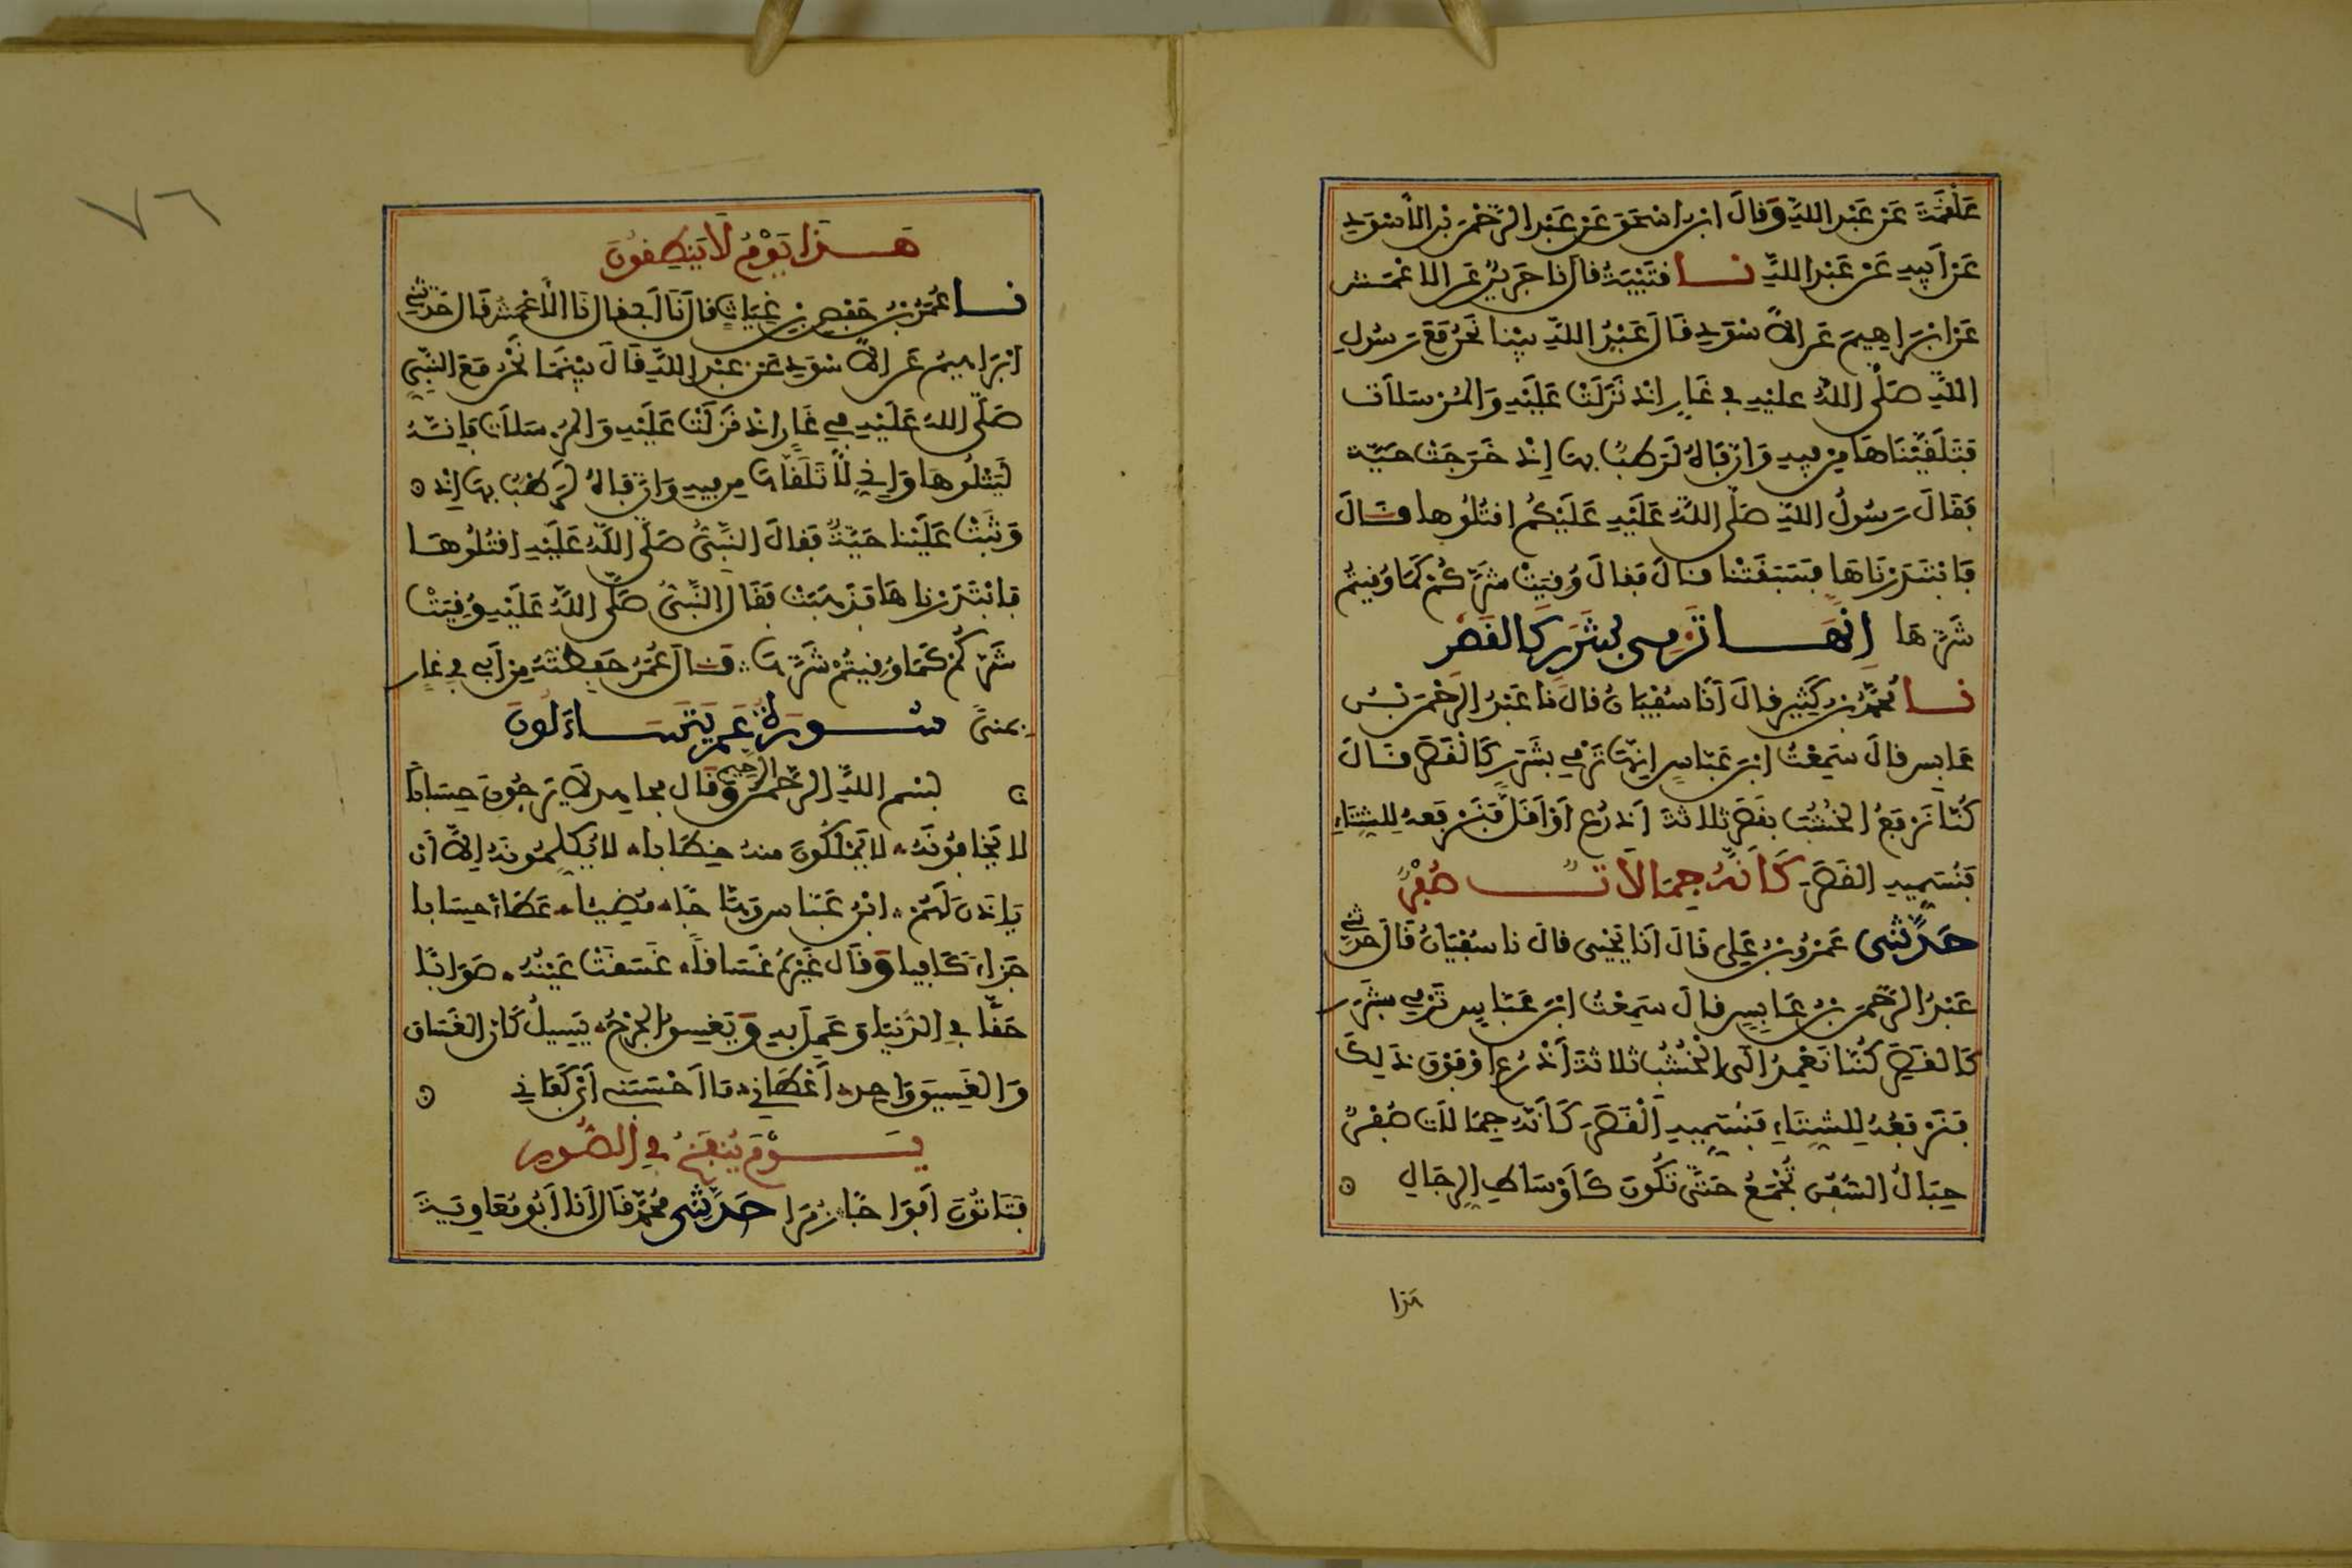 عَلْقَمَةَ عَنْ عَبْدِ اللهِ وَقَالَ ابْنُ إسْحَقَ عَنْ عَبْدِ الرَّحْمَنِ بْنِ الأَسْوَدِ
عَنْ أَبِيهِ عَنْ عَبْدِ اللهِ نا قُتَيْبَةُ قَالَ نا جَرِيرٌ عَنِ الاعْمَشِ
عَنْ ابْرَاهِيمَ عَنِ الاَسْوَدِ قَالَ عَبْدُ اللهِ بَيْنَا نَحْنُ مَعَ رَسُولِ
اللهِ صَلَّى اللهُ عليْهِ في غَارٍ إِذْ نَزَلَتْ عَلَيْهِ وَالْمُرْسَلَات
فَتَلَقَّيْنَاهَا مِنْ فِيهِ وَإنَّ فَاهُ لَرَطْبٌ بها إِذْ خَرَجَتْ حَيَّة
فَقَالَ رَسُولُ اللهِ صَلَّى اللهُ عَلَيْهِ عَلَيْكُم اقْتُلُوها قَالَ
فَابْتَدَرْنَاهَا فَسَبَقَتْنا قالَ فَقالَ وُقِيَتْ شَرَّكُمْ كَمَا وُقِيتُم
شَرَّهَا إِنَّهَا تَرْمِى بِشَرَرٍ كَالْقَصْرِ
نا مُحَمَّدُ بْنُ كَثِيرٍ قالَ أَنَا سُفْيَانُ قالَ نا عَبْدُ الرَّحْمَنِ بْنُ
عَابِسٍ قالَ سَمِعْتُ ابْنَ عَبَّاسٍ إِنَّهَا تَرْمِي بِشَرَرٍ كَالْقَصَرِ قَالَ
كُنَّا نَرْفَعُ الخُشُبَ بِقَصَرٍ ثلاثةَ أَذْرُعٍ أَوْ أَقَلَّ فَنَرْفَعهُ لِلشِّتَاءِ
فَنُسَمِّيهِ القَصَرَ كَأَنَّهُ جِمَالاَتٌ صُفْرٌ
حَدَّثَنِى عَمْرُو بْنُ عَلِى قَالَ أنا يَحْيَى قالَ نا سُفْيَانُ قَالَ حَدَّثَنِي
عَبْدُ الرَّحْمَنِ بْنُ عَابِسٍ قالَ سَمِعْتُ ابْنَ عَبَّاسٍ تَرْمِي بِشَرَرٍ
كَالْقَصَرِ كُنَّا نَعْمِدُ إلَى الْخُشُبِ ثَلَاثَةَ أَذْرُعٍ أوْ فَوْقَ ذَلِكَ
فَنَرْفَعُهُ لِلشِّتَاءِ فَنُسَمِّيهِ الْقَصَرَ كَأَنَّهُ جِمَالَاتٌ صُفْرٌ
حِبَالُ السُّفُنِ تُجْمَعُ حَتَّى تَكُونَ كَأَوْسَاطِ الرِّجَالِ
هَذا
٧٦
هَذَا يَوْمُ لَا يَنطِقُونَ
نا عُمَرُ بْنُ حَفْصِ بْنِ غِيَاثٍ قَالَ نَا أَبي قال نَا الأَعْمَشُ قَال حَدَّثَنِي
ابْرَاهِيمُ عَنِ الاَسْوَدِ عَنْ عَبْدِ اللهِ قَالَ بَيْنَمَا نَحْنُ مَعَ النَّبِيِّ
صَلَّى اللهُ عَلَيْهِ فِي غَارٍ إِذْ نَزَلَتْ عَلَيْهِ وَالْمُرْسَلَاتِ فَإنَّهُ
لَيَتْلُوهَا وَإِنِّي لَأَتَلَقَّاهَا مِنْ فِيهِ وَإنَّ فاهُ لَرَطْبٌ بها إِذْ
وَثَبَتْ عَلَيْنا حَيَّةٌ فَقالَ النَّبِىُّ صَلَّى اللهُ عَلَيْهِ اقْتُلُوهَا
فابْتَدَرْناهَا فَذَهَبَتْ فَقَالَ النَّبِىُّ صَلَّى اللهُ عَلَيْهِ وُقِيَتْ
شَرَّكُمْ كَمَا وُقِيتُمْ شَرَّهَا قَالَ عُمَرُ حَفِظْتُهُ مِنْ أَبِي فِي غارٍ
بِمِنىً سُورَةُ عَمَّ يَتَسَاءَلُونَ
بِسْمِ اللهِ الرَّحْمَنِ الرحيم وَقَال مجاهد لاَ يَرْجُونَ حِسَابًا
لا يَخَافُونَهُ لا يَمْلِكُونَ منهُ خِطَابا لا يُكَلِّمُونَهُ إلاَّ أن
يَاذَنَ لَهُمْ ابْنُ عَبَّاسٍ وَهَّاجًا مُضِيئًا عَطَاءً حِسَابا
جَزَاءً كَافِيا وَقَالَ غَيْرُهُ غَسَّاقًا غَسَقَتْ عَيْنُهُ صَوَابًا
حَقًّا فِي الدُّنْيَا وَعَمِلَ بِهِ وَيَغْسِقُ الْجُرْحُ يَسِيلُ كَأَنَّ الغَسَّاقَ
وَالغَسِيقَ وَاحِدٌ أَعْطَانِي مَا أَحْسَبَنِي أَيْ كَفَانِي
يَوْمَ يُنفَخُ فِي الصُّورِ
فَتَاتُونَ أَفْوَاجًا زُمَرًا حَدَّثَنِى مُحَمَّدٌ قَالَ أَنا أَبُو مُعَاوِيَةَ